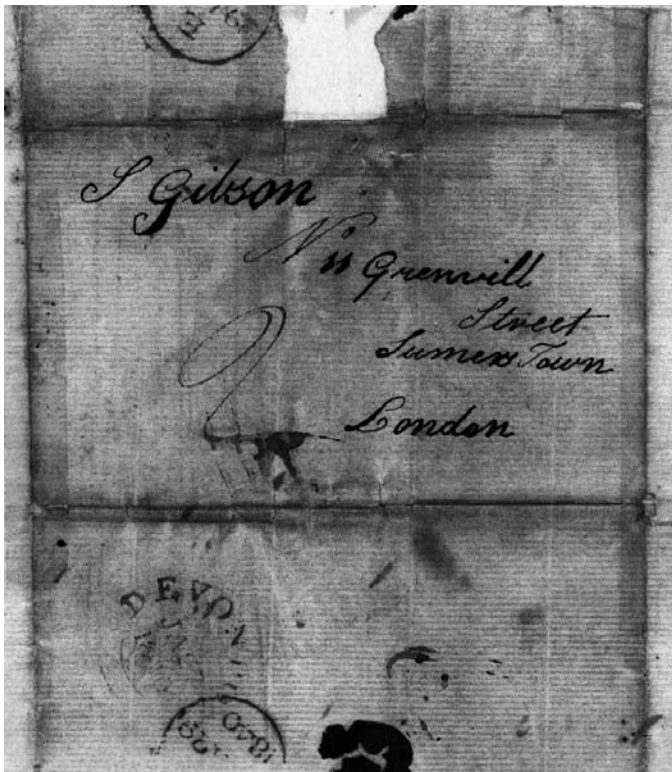 S Gibson
N 11 Grenvill
Street
Sumers Town
2
London
DEVON
JA
1840